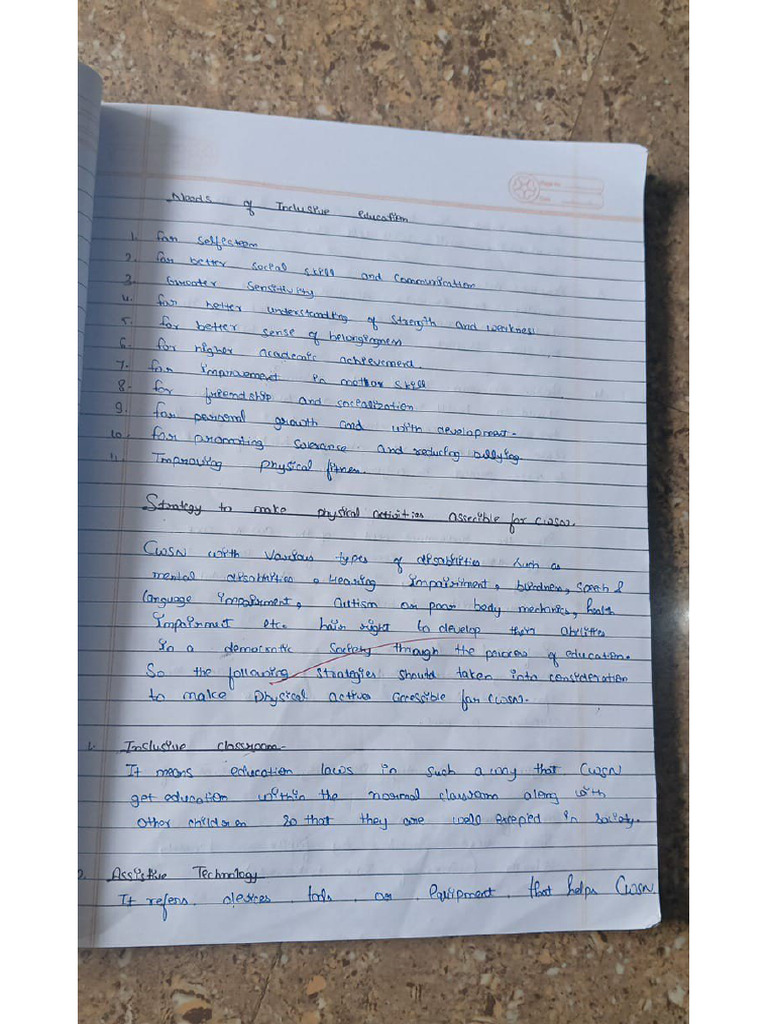 Needs of Inclusive education
1. for selfesteem
2. for better social skill and communication
3. Greater Sensitivity
4. for better understandting of strength and weakness
5. for better sense of belongingness
6. for higher academic achievement.
7. for improvement in mother skill
8. for friendship and socialization
9. for personal growth and with development.
10. for promoting tolerance and reducing
11. Improving physical fitness.
Strategy to make physical activities assecible for CWSN.
CWSN with various types of disabilities such as
mental disabilities, Hearing impairment, blindness, speech &
language impairment, Autism or poor body mechnics, health
impairment etc. right to develop their abilities
in a democratic society through the process of education.
So the following strategies should taken into consideration
to make physical active accessible for CWSN.
1. Inclusive classroom-
It means education laws in such a way that CWSN
get education within the normal classroom along with
other children so that they are well in society.
2. Assistive Technology
It refers devices tools or equipment that helps CWSN